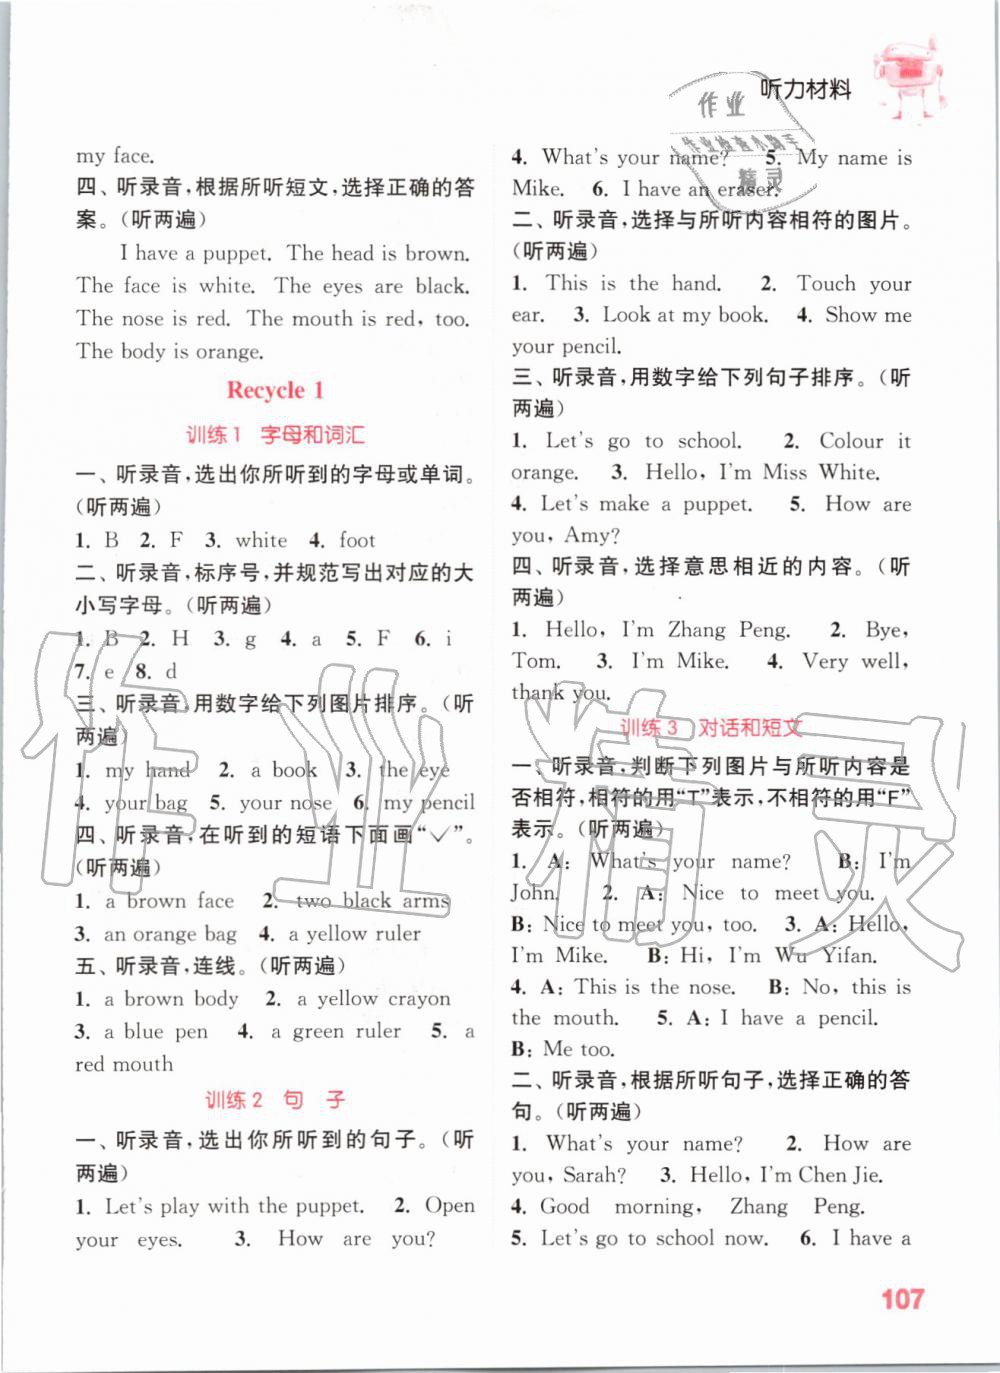 听力材料
my face.
四、听录音,根据所听短文,选择正确的答
案。(听两遍)
I have a puppet. The head is brown.
The face is white. The eyes are black.
The nose is red. The mouth is red, too.
The body is orange.
Recycle 1
训练1 字母和词汇
一、听录音,选出你所听到的字母或单词。
(听两遍)
1. B 2. F 3. white 4. foot
二、听录音,标序号,并规范写出对应的大
小写字母。(听两遍)
1. B 2. H 3. g 4. a 5. F 6. i
7. e 8. d
三、听录音,用数字给下列图片排序。(听
两遍)
1. my hand 2. a book 3. the eye
4. your bag 5. your nose 6. my pencil
四、听录音,在听到的短语下面画“✓”。
(听两遍)
1. a brown face 2. two black arms
3. an orange bag 4. a yellow ruler
五、听录音,连线。(听两遍)
1. a brown body 2. a yellow crayon
3. a blue pen 4. a green ruler 5. a
red mouth
训练2 句 子
一、听录音,选出你所听到的句子。(听
两遍)
1. Let's play with the puppet. 2. Open
your eyes. 3. How are you?
4. What's your name? 5. My name is
Mike. 6. I have an eraser.
二、听录音,选择与所听内容相符的图片。
(听两遍)
1. This is the hand. 2. Touch your
ear. 3. Look at my book. 4. Show me
your pencil.
三、听录音,用数字给下列句子排序。(听
两遍)
1. Let's go to school. 2. Colour it
orange. 3. Hello, I'm Miss White.
4. Let's make a puppet. 5. How are
you, Amy?
四、听录音,选择意思相近的内容。(听
两遍)
1. Hello, I'm Zhang Peng. 2. Bye,
Tom. 3. I'm Mike. 4. Very well,
thank you.
训练3 对话和短文
一、听录音,判断下列图片与所听内容是
否相符,相符的用“T”表示,不相符的用“F”
表示。(听两遍)
1. A: What's your name? B: I'm
John. 2. A: Nice to meet you.
B: Nice to meet you, too. 3. A: Hello,
I'm Mike. B: Hi, I'm Wu Yifan.
4. A: This is the nose. B: No, this is
the mouth. 5. A: I have a pencil.
B: Me too.
二、听录音,根据所听句子,选择正确的答
句。(听两遍)
1. What's your name? 2. How are
you, Sarah? 3. Hello, I'm Chen Jie.
4. Good morning, Zhang Peng.
5. Let's go to school now. 6. I have a
107
作业
作业检查小助手
精灵
作业精灵